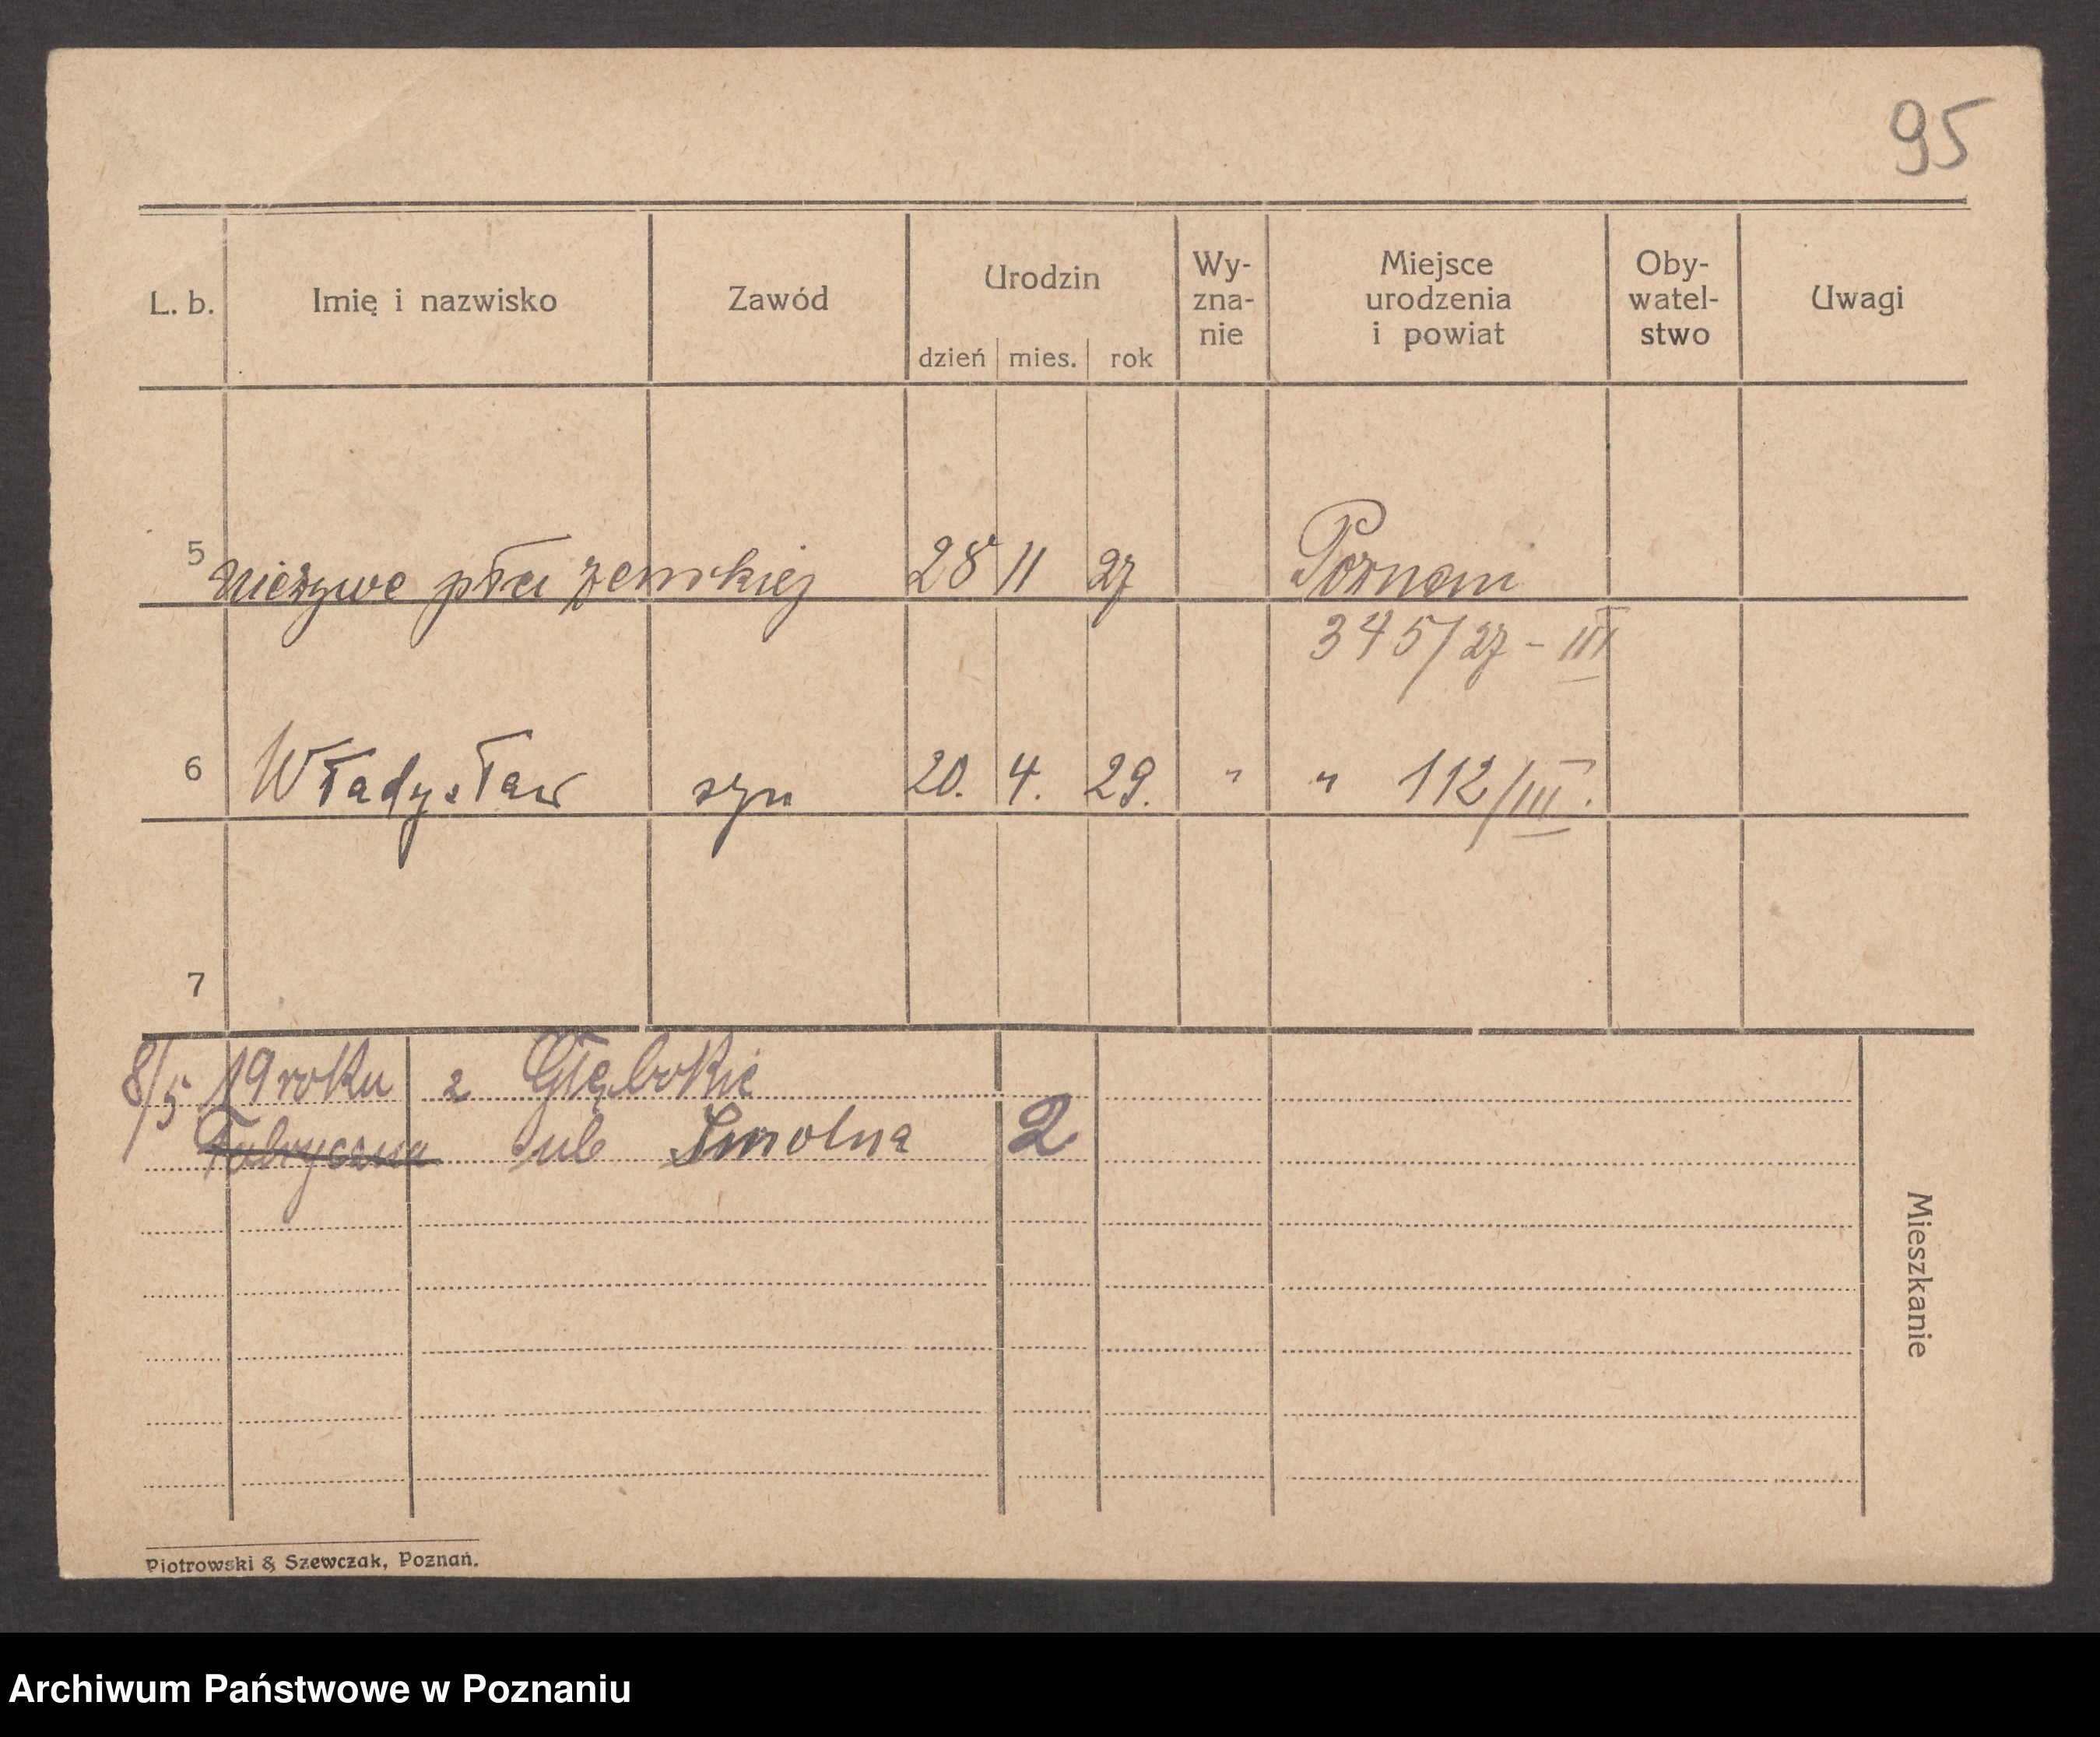 95
L. b. Imię i nazwisko Zawód Urodzin dzień mies. rok Wy-zna-nie Miejsce urodzenia i powiat Oby-watel-stwo Uwagi
5 nieżywe płci żeńskiej 28 11 27 Poznań
345/27 - III
6 Władysław syn 20. 4. 29. " " 112/III.
7
8/5 19 roku z Głębokie
Fabryczna ul Smolna 2
Mieszkanie
Piotrowski & Szewczak, Poznań.
Archiwum Państwowe w Poznaniu